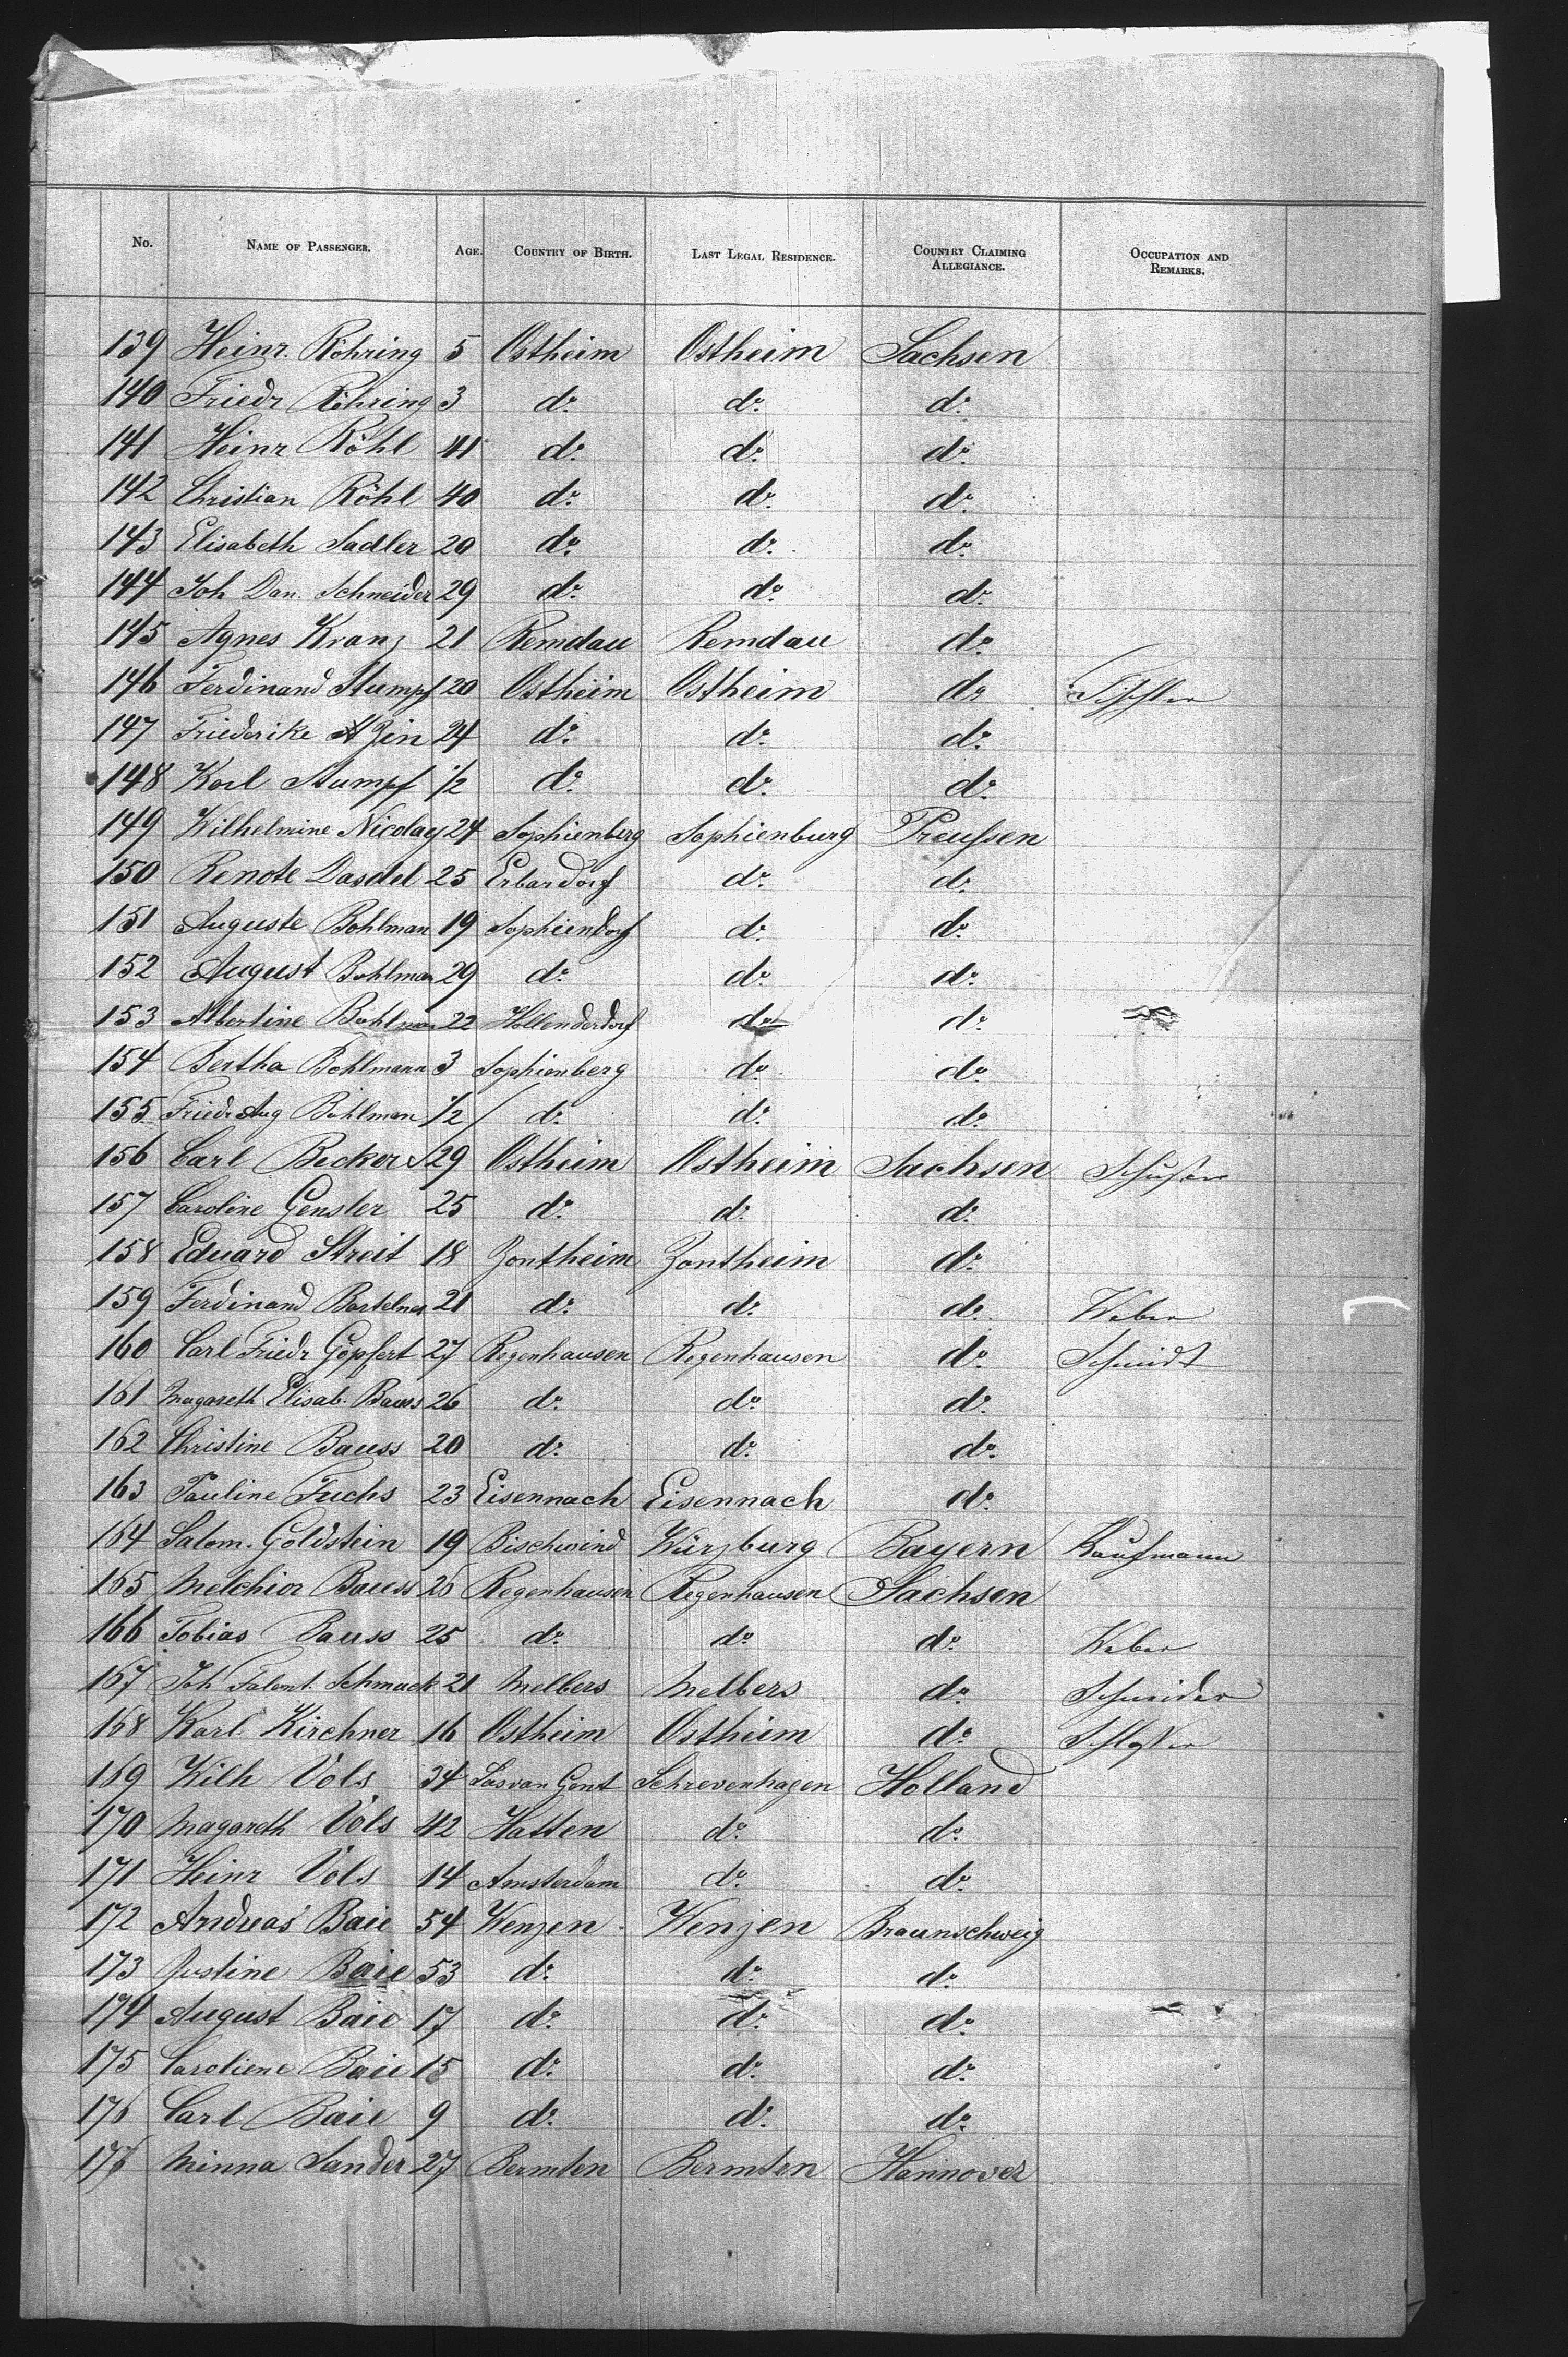 No. NAME OF PASSENGER. AGE. COUNTRY OF BIRTH. LAST LEGAL RESIDENCE. COUNTRY CLAIMING ALLEGIANCE. OCCUPATION AND REMARKS.
139 Heinr. Röhring 5 Ostheim Ostheim Sachsen
140 Friedr Röhring 3 do. do. do.
141 Heinr Röhl 41 do. do. do.
142 Christian Röhl 40 do. do. do.
143 Elisabeth Sadler 20 do. do. do.
144 Joh Dan. Schneider 29 do. do. do.
145 Agnes Kranz 21 Remdau Remdau do.
146 Ferdinand Stumpf 20 Ostheim Ostheim do Tischler
147 Friederike 24 do. do. do.
148 Karl Stumpf 1/2 do. do. do.
149 Wilhelmine Nicolay 24 Sophienberg Sophienburg Preussen
150 Renate Dasdel 25 Erbardorf do. do.
151 Auguste Bohlman 19 Sophiendorf do. do.
152 August Bohlman 29 do. do. do.
153 Albertine Bohlman 22 Hollenderdorf do. do.
154 Bertha Bohlmann 3 Sophienberg do. do.
155 Friedr Aug Bohlman 1/2 do. do. do.
156 Carl Becker 29 Ostheim Ostheim Sachsen Schuster
157 Caroline Gensler 25 do. do. do.
158 Eduard Streit 18 Zontheim Zontheim do.
159 Ferdinand 21 do. do. do. Weber
160 Carl Friedr Göpfert 27 Regenhausen Regenhausen do. Schmidt
161 Magareth Elisab. Bauss 26 do. do. do.
162 Christine Bauss 20 do. do. do.
163 Pauline Fuchs 23 Eisennach Eisennach do.
164 Salom. Goldstein 19 Bischwind Würzburg Bayern Kaufmann
165 Melchior Bauss 26 Regenhausen Regenhausen Sachsen
166 Tobias Bauss 25 do. do. do. Weber
167 Joh Schmuck 21 Melbers Melbers do. Schneider
168 Karl Kirchner 16 Ostheim Ostheim do. Schlosser
169 Wilh Vols 34 Sasvan Gent Schrevenhagen Holland
170 Magareth Vols 42 Hatten do. do.
171 Heinr Vols 14 Amsterdam do. do.
172 Andreas Baie 54 Wenzen Wenzen Braunschweig
173 Justine Baie 53 do. do. do.
174 August Baie 17 do. do. do.
175 Caroliene Baie 15 do. do. do.
176 Carl Baie 9 do. do. do.
176 Minna Sander 27 Bermten Bermten Hannover